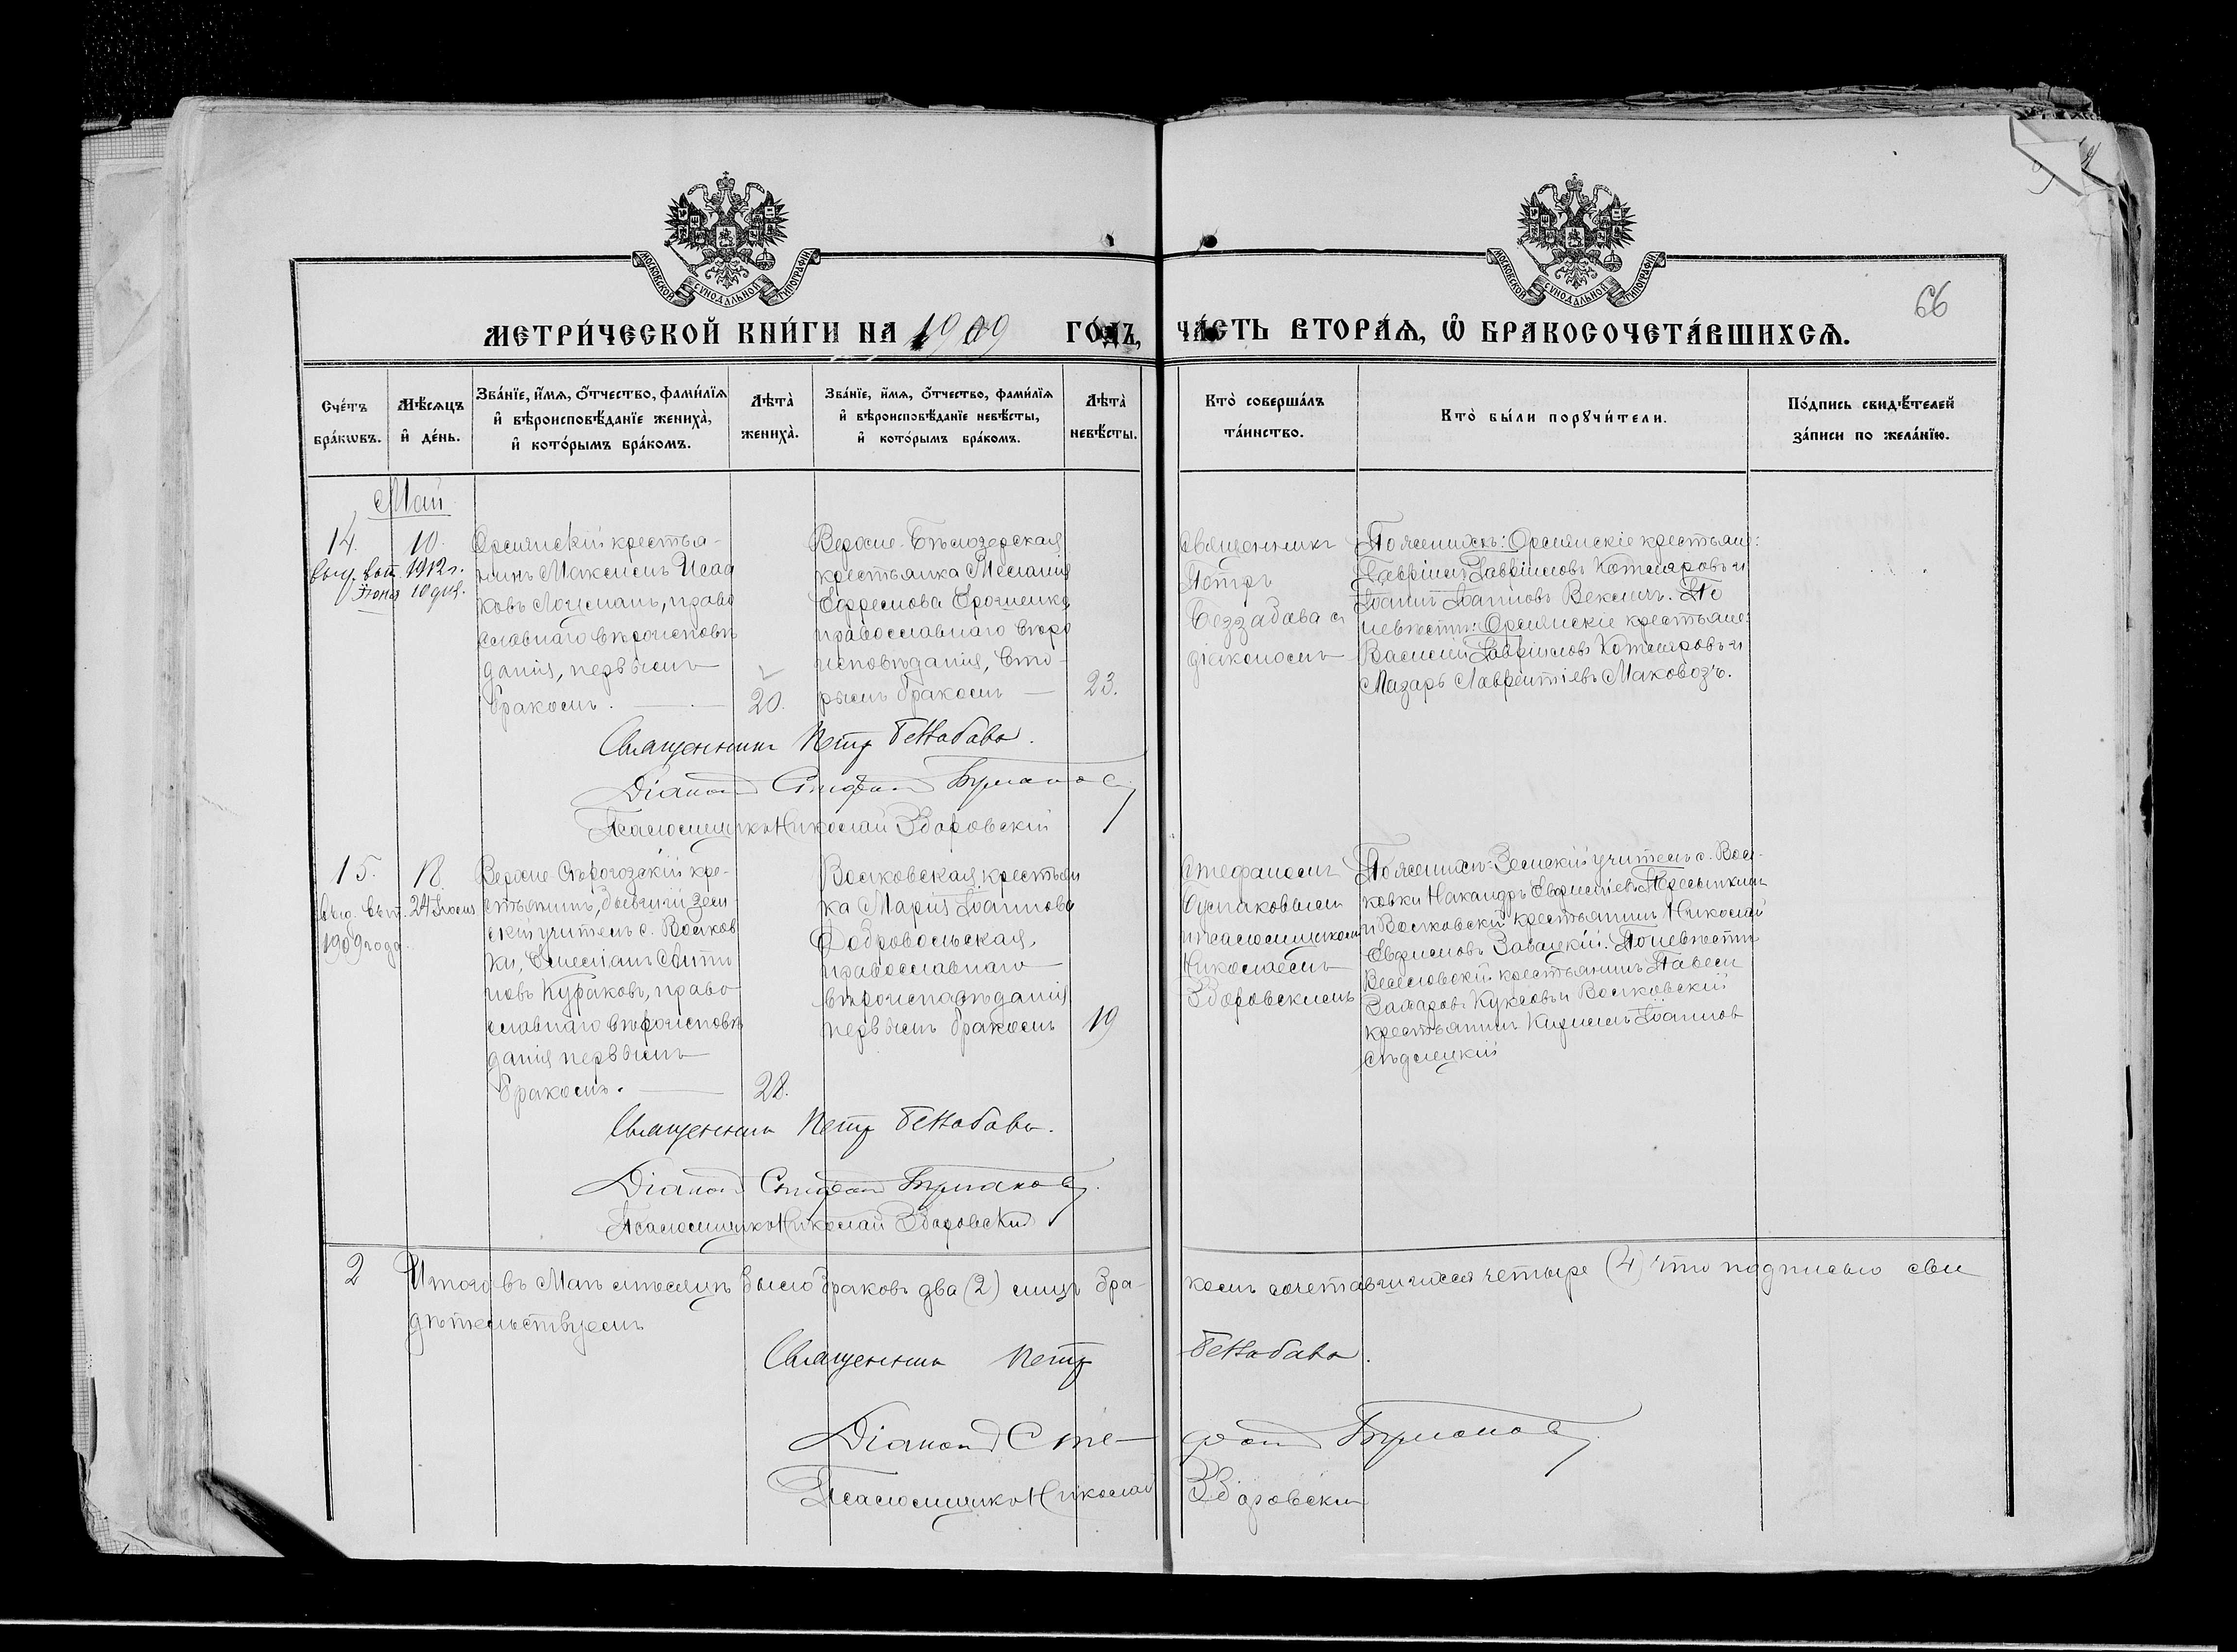 66
МОСКОВСКОЙ СУНОДАЛЬНОЙ ТИПОГРАФІИ
МОСКОВСКОЙ СУНОДАЛЬНОЙ ТИПОГРАФІИ
МЕТРИ́ЧЕСКОЙ КНИ́ГИ НА 1909 ГО́ДЪ, ЧА́СТЬ ВТОРА́Я, Ѡ БРАКОСОЧЕТА́ВШИХСѦ.
Сче́тъ
бра́кѡвъ.
Мѣ́сѧцъ
и҆ де́нь.
Зва́нїе, и҆́мѧ, ѻ҆́тчество, фами́лїѧ
и҆ вѣроисповѣ́данїе жениха̀,
и҆ кото́рымъ бра́комъ.
Лѣта̀
жениха̀.
Зва́нїе, и҆́мѧ, ѻ҆́тчество, фами́лїѧ
и҆ вѣроисповѣ́данїе невѣ́сты,
и҆ кото́рымъ бра́комъ.
Лѣта̀
невѣ́сты.
Кто̀ соверша́лъ
та́инство.
Кто̀ бы́ли порꙋчи́тели.
По́дпись свидѣ́телей
за́писи по жела́нїю.
Май
14.
выд. вып.
Іюня
10.
1912 г.
10 дня.
Орлянскій крестья-
нинъ Максимъ Исаа
ковъ Лоцманъ, право
славнаго вѣроисповѣ
данія, первымъ
бракомъ.
20.
Верхне-Бѣлозерская
крестьянка Меланія
Ефремова Ерошенко
православнаго вѣро
исповѣданія, вто-
рымъ бракомъ
23.
Священникъ
Петръ
Беззабава съ
діакономъ
По женихѣ: Орлянскіе крестьяне:
Гавріилъ Гавріиловъ Котляровъ и
Іоаннъ Іоанновъ Векличъ. По
невѣстѣ: Орлянскіе крестьяне:
Василій Гавріиловъ Котляровъ и
Лазарь Лаврентіевъ Маковозъ.
Священникъ Петръ Беззабава.
Діаконъ Стефанъ Бурлаковъ
Псаломщикъ Николай Здоровскій
15.
выд. вып.
1909 года
18.
24 Іюня
Верхне-Сѣрогозскій кре-
стьянинъ, бывшій зем-
скій учитель с. Волков
ки,
новъ Кураковъ, право-
славнаго вѣроисповѣ
данія первымъ
бракомъ.
28.
Волковская крестьян
ка Марія Іоаннова
Добровольская,
православнаго
вѣроисповѣданія
первымъ бракомъ
19
Стефаномъ
Бурлаковымъ
и псаломщикомъ
Николаемъ
Здоровскимъ
По женихѣ: Земскій учитель с. Вол-
ковки Никандръ
и Волковскій крестьянинъ Николай
По невѣстѣ
Веселовскій крестьянинъ Павелъ
Захаровъ Куксовъ и Волковскій
крестьянинъ Кириллъ Іоанновъ
Сѣдлецкій
Священникъ Петръ Беззабава.
Діаконъ Стефанъ Бурлаковъ.
Псаломщикъ Николай Здоровскій
2 Итого въ Маѣ мѣсяцѣ было браковъ два (2) лицъ бра- комъ сочетавшихся четыре (4) что подписью сви
дѣтельствуемъ
Священникъ Петръ Беззабава.
Діаконъ Сте- фанъ Бурлаковъ.
Псаломщикъ Николай Здоровскій